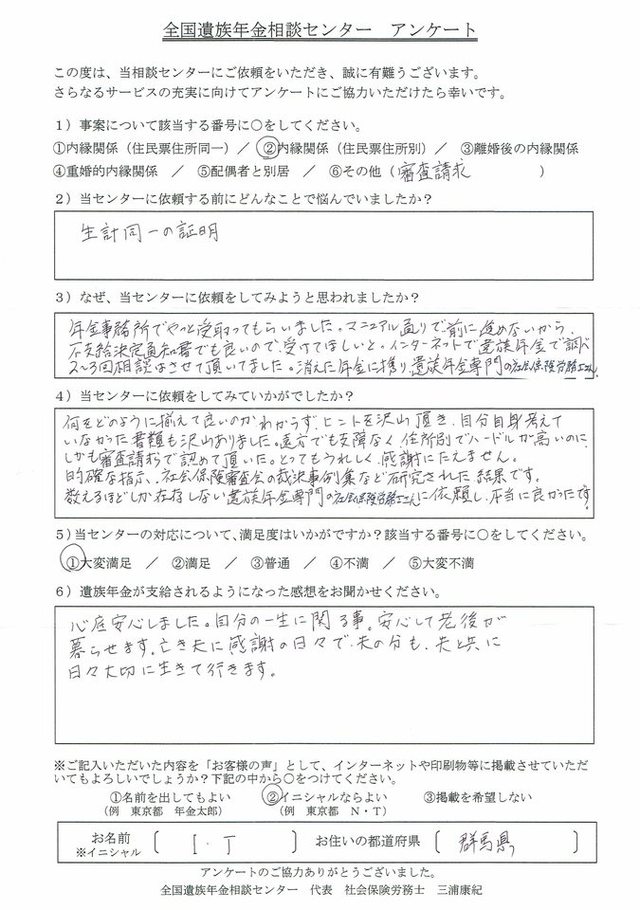 全国遺族年金相談センター　アンケート
この度は、当相談センターにご依頼をいただき、誠に有難うございます。
さらなるサービスの充実に向けてアンケートにご協力いただけたら幸いです。
1）事案について該当する番号に○をしてください。
①内縁関係（住民票住所同一）／　②内縁関係（住民票住所別）／　③離婚後の内縁関係
④重婚的内縁関係　／　⑤配偶者と別居　／　⑥その他（審査請求　　　　）
2）当センターに依頼する前にどんなことで悩んでいましたか？
生計同一の証明
3）なぜ、当センターに依頼をしてみようと思われましたか？
年金事務所でやっと受取ってもらいました。マニュアル通りで前に進めないから、
不支給決定通知書でも良いので、受けてほしいと。インターネットで遺族年金で調べ
2～3回相談はさせて頂いてました。消えた年金に携り、遺族年金専門の社会保険労務士さん。
4）当センターに依頼をしてみていかがでしたか？
何をどのように揃えて良いのかわからず、ヒントを沢山頂き、自分自身考えて
いなかった書類も沢山ありました。遠方でも支障なく、住所別でハードルが高いのに、
しかも審査請求で認めて頂いた。とってもうれしく、感謝にたえません。
的確な指示、社会保険審査会の裁決事例集など研究された結果です。
数えるほどしか存在しない遺族年金専門の社会保険労務士さんに依頼し、本当に良かったです
5）当センターの対応について、満足度はいかがですか？該当する番号に○をしてください。
①大変満足　／　②満足　／　③普通　／　④不満　／　⑤大変不満
6）遺族年金が支給されるようになった感想をお聞かせください。
心底安心しました。自分の一生に関る事。安心して老後が
暮らせます。亡き夫に感謝の日々で、夫の分も、夫と共に
日々大切に生きて行きます。
※ご記入いただいた内容を「お客様の声」として、インターネットや印刷物等に掲載させていただ
いてもよろしいでしょうか？下記の中から○をつけてください。
①名前を出してもよい　　②イニシャルならよい　　③掲載を希望しない
（例　東京都　年金太郎）　　（例　東京都　N・T）
お名前　〔　I・J　〕　お住いの都道府県　〔　群馬県　〕
※イニシャル
アンケートのご協力ありがとうございました。
全国遺族年金相談センター　代表　社会保険労務士　三浦康紀